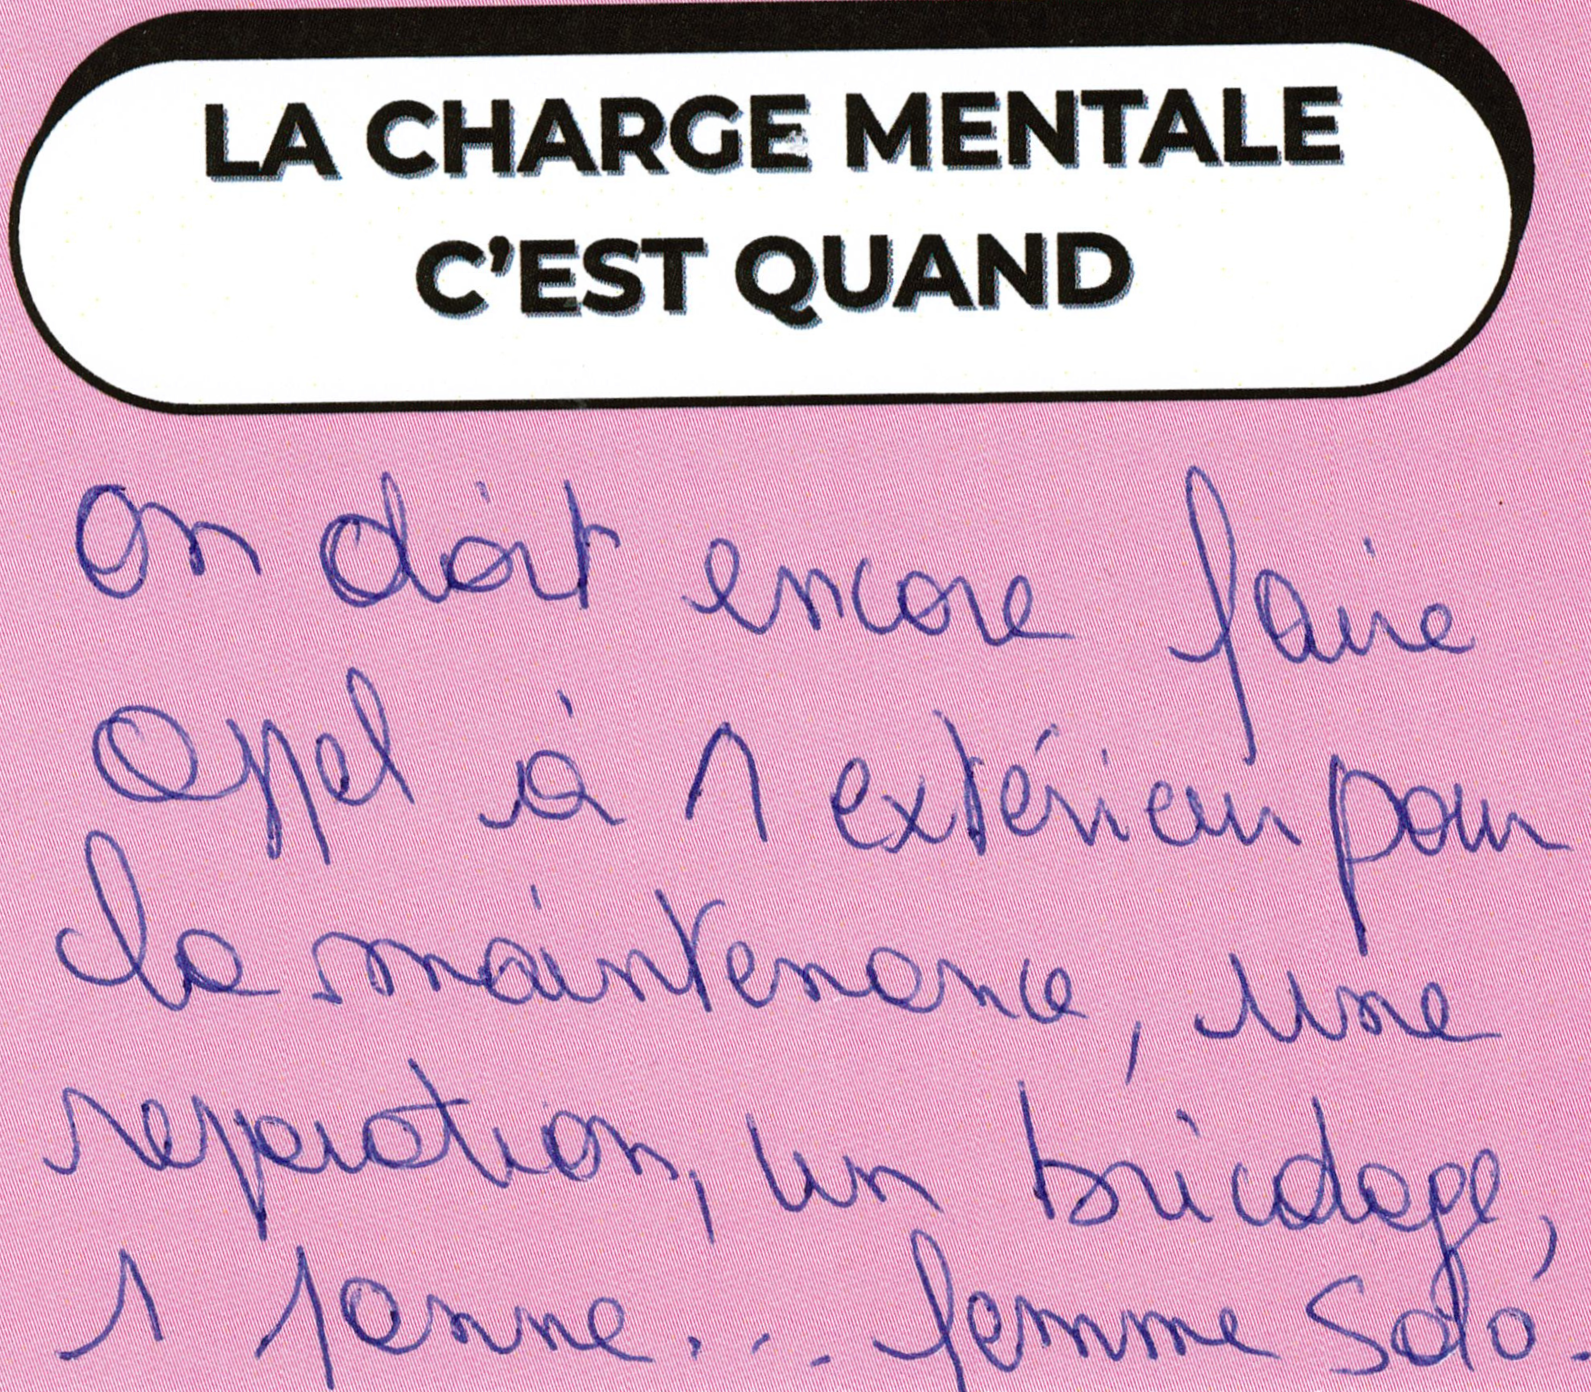 LA CHARGE MENTALE
C'EST QUAND
On doit encore faire
appel à 1 extérieur pour
la maintenance, une
reparation, un bricolage,
1 panne... femme Solo.